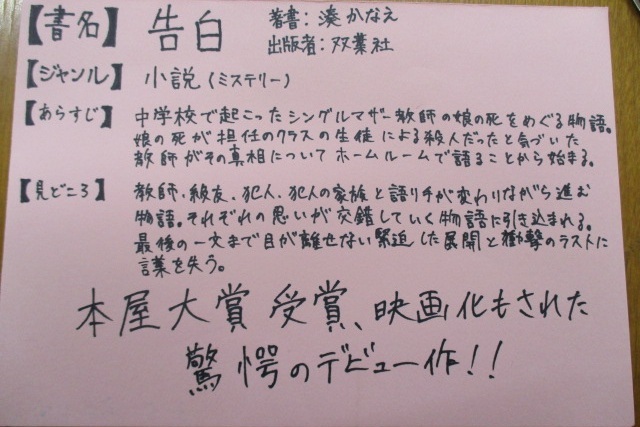 【書名】 告白 著書：湊かなえ
出版者：双葉社
【ジャンル】 小説（ミステリー）
【あらすじ】 中学校で起こったシングルマザー教師の娘の死をめぐる物語。
娘の死が担任のクラスの生徒による殺人だったと気づいた
教師がその真相についてホームルームで語ることから始まる。
【見どころ】 教師、級友、犯人、犯人の家族と語り手が変わりながら進む
物語。それぞれの思いが交錯していく物語に引き込まれる。
最後の一文まで目が離せない緊迫した展開と衝撃のラストに
言葉を失う。
本屋大賞受賞、映画化もされた
驚愕のデビュー作！！